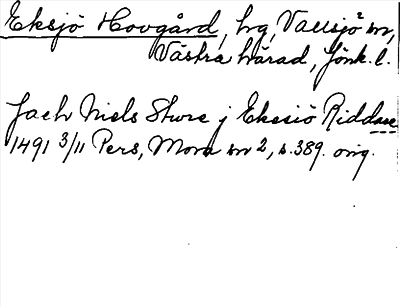 Eksjö Hovgård, hg, Vallsjö sn,
Västra härad, Jönk. l.
Jach Niels Sture j Ekesiö Riddare
1491 3/11 Pers, Mora sn 2, s. 389. orig.